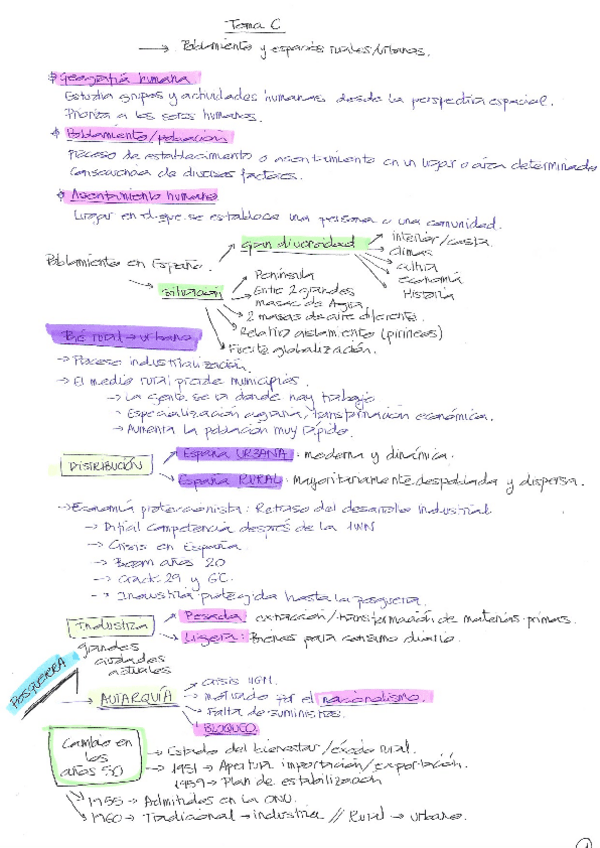 Tema C
→ Poblamiento y espacios rurales/urbanos.
Geografía humana
Estudia grupos y actividades humanas desde la perspectiva espacial.
Prioriza a los seres humanos.
Poblamiento/población
Proceso de establecimiento o asentamiento en un lugar o área determinada
consecuencia de diversos factores.
Asentamiento humano
Lugar en el que se establece una persona o una comunidad.
Poblamiento en España.
gran diversidad
interior/costa
climas
cultura
economía
Historia
situación
Península
Entre 2 grandes
masas de Agua
2 masas de aire diferente.
Relativo aislamiento (pirineos)
Fuerte globalización.
rural → urbano
→ Proceso industrialización.
→ El medio rural pierde municipios.
→ La gente se va donde hay trabajo
Especialización agraria/transformación económica.
→ Aumenta la población muy rápido.
DISTRIBUCIÓN
España URBANA: moderna y dinámica.
España RURAL: Mayoritariamente despoblada y dispersa.
→ Economía proteccionista: Retraso del desarrollo industrial
→ Difícil competencia después de la
→ Crisis en España
→ Boom años 20
→ Crack 29 y GC.
→ Industria protegida hasta la posguerra.
Industria
Pesada: extracción/transformación de materias primas.
Ligera: Bienes para consumo diario.
grandes
ciudades
actuales
POSGUERRA
AUTARQUÍA
→ Crisis IIGM.
→ Motivado por el nacionalismo.
→ Falta de suministros.
BLOQUEO
Cambio en
los
años 50
→ Estado del bienestar/éxodo rural.
→ 1951 → Apertura importación/exportación.
1959 → Plan de estabilización
1955 → Admitidos en la ONU.
1960 → Tradicional → industria // Rural → urbano.